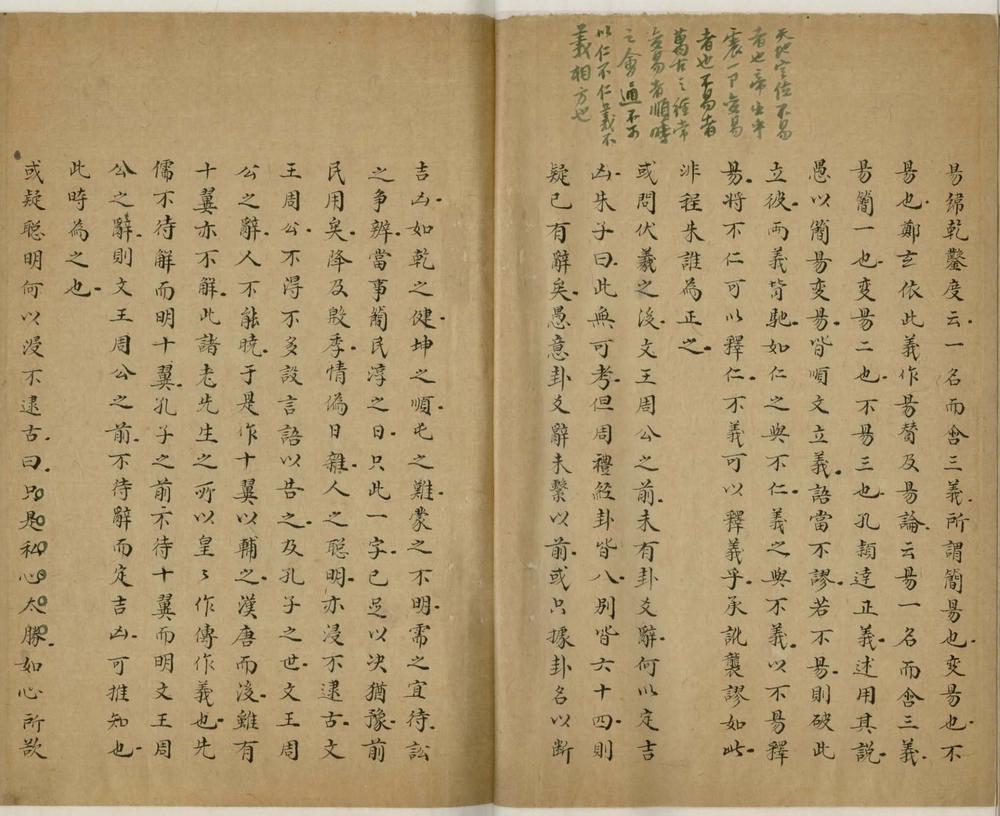 天地定位不易
者也帝出乎
震一章變易
者也不易者
萬古之經常
變易者順時
之會通不可
以仁不仁義不
義相方也
易緯乾鑿度云一名而含三義所謂簡易也変易也不
易也鄭玄依此義作易贊及易論云易一名而含三義
易簡一也变易二也不易三也孔頴達正義述用其説
愚以簡易变易皆順文立義語當不謬若不易則破此
立彼两義背馳如仁之與不仁義之與不義以不易釋
易将不仁可以釋仁不義可以釋義乎承訛襲謬如此
非程朱誰為正之
或問伏羲之後文王周公之前未有卦爻辭何以定吉
凶朱子曰此無可考但周禮経卦皆八别皆六十四則
疑已有辭矣愚意卦爻辭未繫以前或只據卦名以断
吉凶如乾之健坤之順屯之難蒙之不明需之宜待訟
之争辨當事簡民淳之日只此一字已足以决猶豫前
民用矣降及殷季情偽日雜人之聡明亦浸不逮古文
王周公不得不多設言語以告之及孔子之世文王周
公之辭人不能暁于是作十翼以輔之漢唐而後雖有
十翼亦不解此諸老先生之所以皇〻作傳作義也先
儒不待解而明十翼孔子之前不待十翼而明文王周
公之辭則文王周公之前不待辭而定吉凶可推知也
此時為之也
或疑聡明何以浸不逮古曰只是私心太勝如心所欲